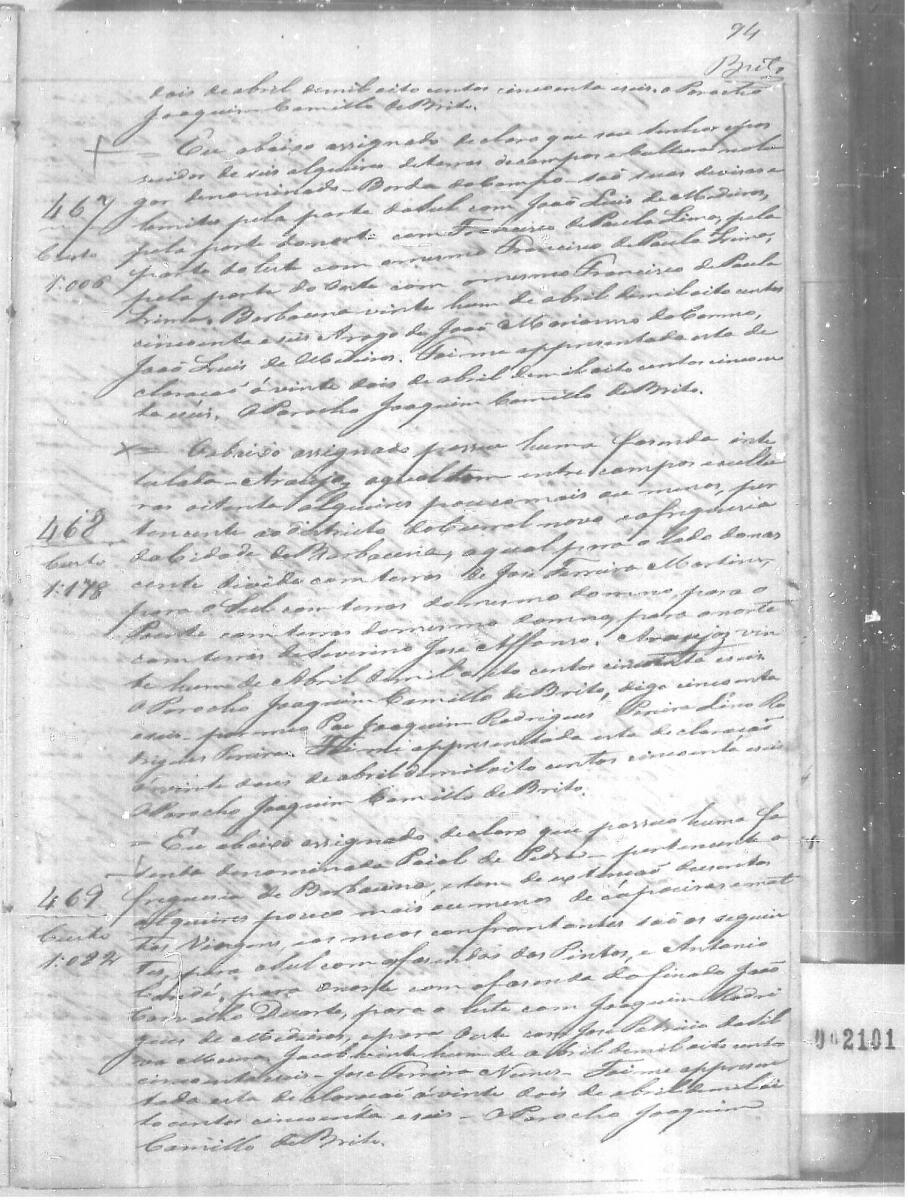 94
Brito
dois de abril de mil oito centos cincoenta e seis. o Parocho
Joaquim Camillo de Brito.
= Eu abaixo assignado declaro que sou senhor e pos
suidor de seis alqueires de terras de campos e cultura no lu
gar denominado - Borda do Campo - são suas devisas e
467
lemites pela parte do sul com João Luis de Medeiros,
pela parte do norte com Francisco de Paula Lima, pela
Custo
parte do leste com o mesmo Francisco de Paula Lima,
1:006
pela parte do Oeste com o mesmo Francisco de Paula
Lima. Barbacena vinte hum de abril de mil oito centos
cincoenta e seis Arogo de João Marianno do Carmo,
João Luis de Medeiros. Foi me appresentada esta de
claração á vinte dois de abril de mil oito centos cincoen
ta e seis. O Parocho Joaquim Camillo de Brito.
= O abaixo assignado possue huma fasenda inte
tulada - Araujo, a qual tem entre campos e cultu
ras oitenta alqueires pouco mais ou menos, per
468
tencente ao districto do Curral novo e a freguesia
da Cidade de Barbacena, a qual para o lado do nas
Custo
cente divide com terras de José Ferreira Martins,
1:178
para o Sul com terras do mesmo domno, para o
Poente com terras do mesmo domno, para o norte
com terras de Severino José Affonso. Araujo, vin
te hum de Abril de mil oito centos cincoenta e seis
O Parocho Joaquim Camillo de Brito, digo cincoenta
e seis - por meu Pae Joaquim Rodrigues Pereira Lino Ro
drigues Pereira. Foi me appresentada esta declaração
á vinte dous de abril de mil oito centos cincoenta e seis
O Parocho Joaquim Camillo de Brito.
= Eu abaixo assignado declaro que possuo huma fa
senda denominada Paiol de Pedra - pertencente a
freguesia de Barbacena, e tem de extenção dusentos
469
alqueires pouco mais ou menos de capoeiras e mat
Custo
tos Virgens, e os meos confrontantes são os seguin
1:082
tes, para o sul com a fasenda dos Pintos, e Antonio
para o norte com a fasenda do finado João
Carvalho Duarte, para o leste com Joaquim Rodri
gues de Medeiros, e para Oeste com José Patricio da Sil
va vinte hum de abril de mil oito centos
cincoenta e seis - José Ferreira Nunes - Foi me appresen
tada esta declaração á vinte dois de abril de mil oi
to centos cincoenta e seis - O Parocho Joaquim
Camillo de Brito.
002101